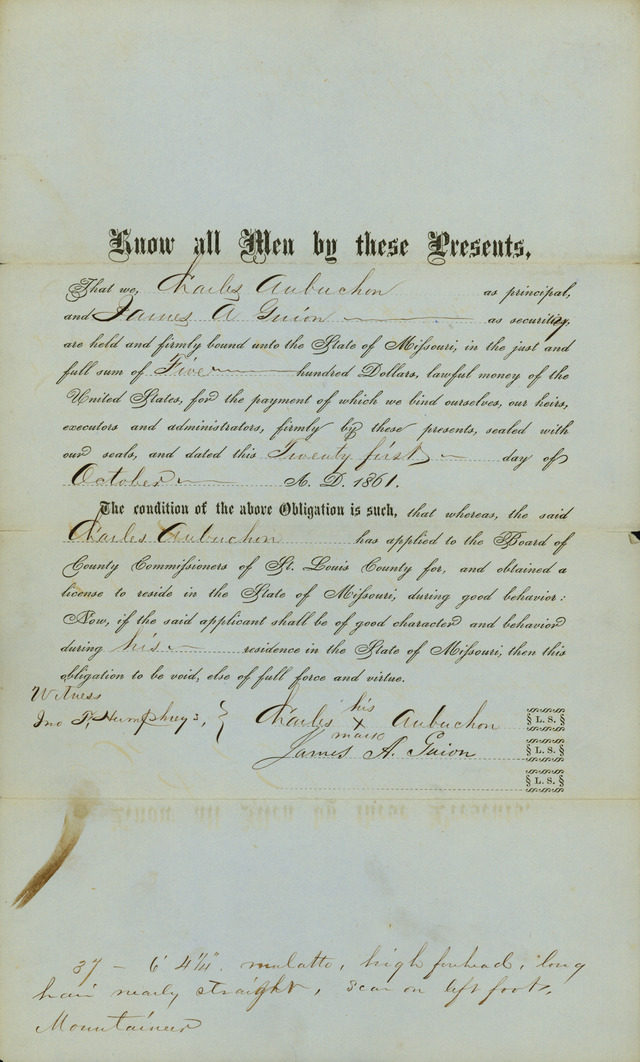 Know all Men by these Presents,
That we, Charles Aubuchon as principal,
and James A Guion as security,
are held and firmly bound unto the State of Missouri, in the just and
full sum of Five hundred Dollars, lawful money of the
United States, for the payment of which we bind ourselves, our heirs,
executors and administrators, firmly by these presents, sealed with
our seals, and dated this Twenty first day of
October A. D. 1861.
The condition of the above Obligation is such, that whereas, the said
Charles Aubuchon has applied to the Board of
County Commissioners of St. Louis County for, and obtained a
license to reside in the State of Missouri, during good behavior:
Now, if the said applicant shall be of good character and behavior
during his residence in the State of Missouri, then this
obligation to be void, else of full force and virtue.
Witness
Jno T. Humphreys, } Charles his X mark Aubuchon § L. S. §
James A. Guion § L. S. §
§ L. S. §
37 - 6' 4 1/4". mulatto, high forhead, long
hair nearly straight, scar on left foot,
Mountaineer